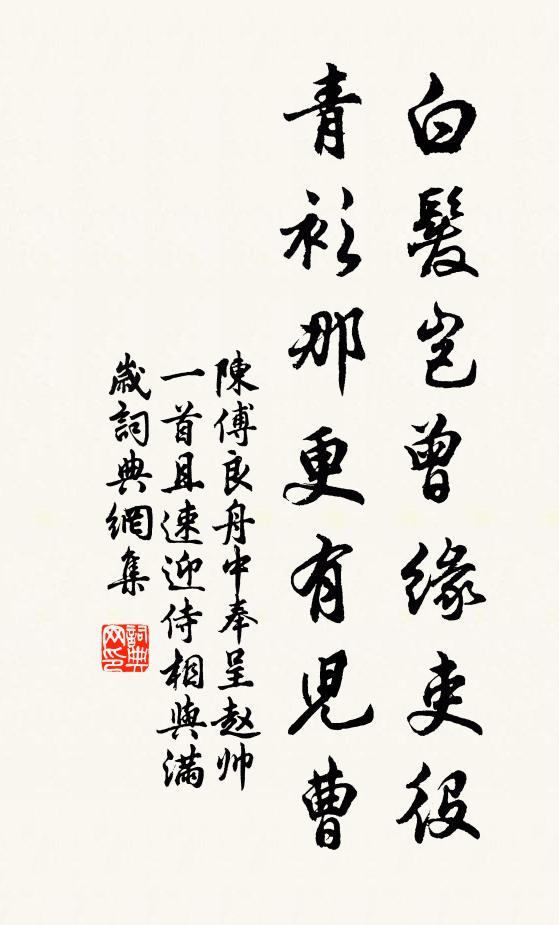 白髮岂曾緣吏役
青衫那更有児曹
陳傅良舟中奉呈赵帅
一首且速迎侍相與滿
歲詞典網集
詞典网印